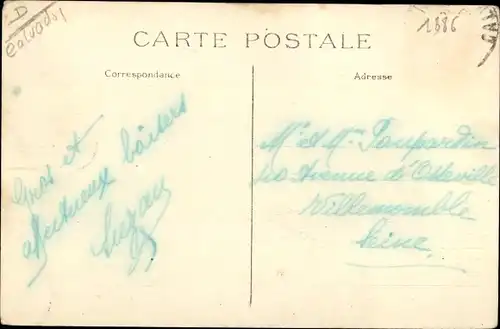 D
Calvados
1886
CARTE POSTALE
Correspondance
Adresse
Gros et
affectueux baisers
Suzan
Mr et Me Poupardin
Avenue d'Osseville
Villemomble
Seine